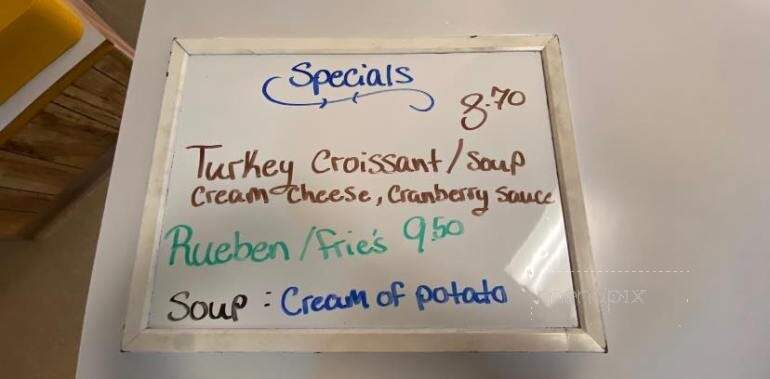 Specials
8.70
Turkey Croissant/Soup
Cream Cheese, Cranberry Sauce
Rueben/Frie's 9.50
Soup: Cream of potato